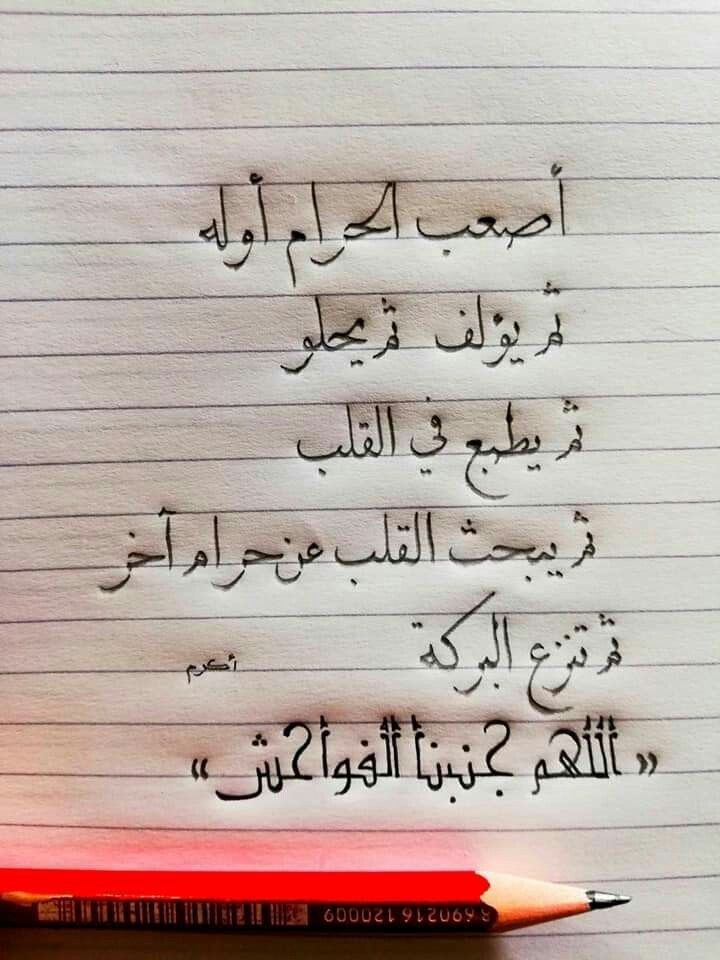 أصعب الحرام أوله
ثم يؤلف ثم يحلو
ثم يطبع في القلب
ثم يبحث القلب عن حرام آخر
ثم تنزع البركة
أكرم
« أللهم جنبنأ ألفوأحش »
8690216120009